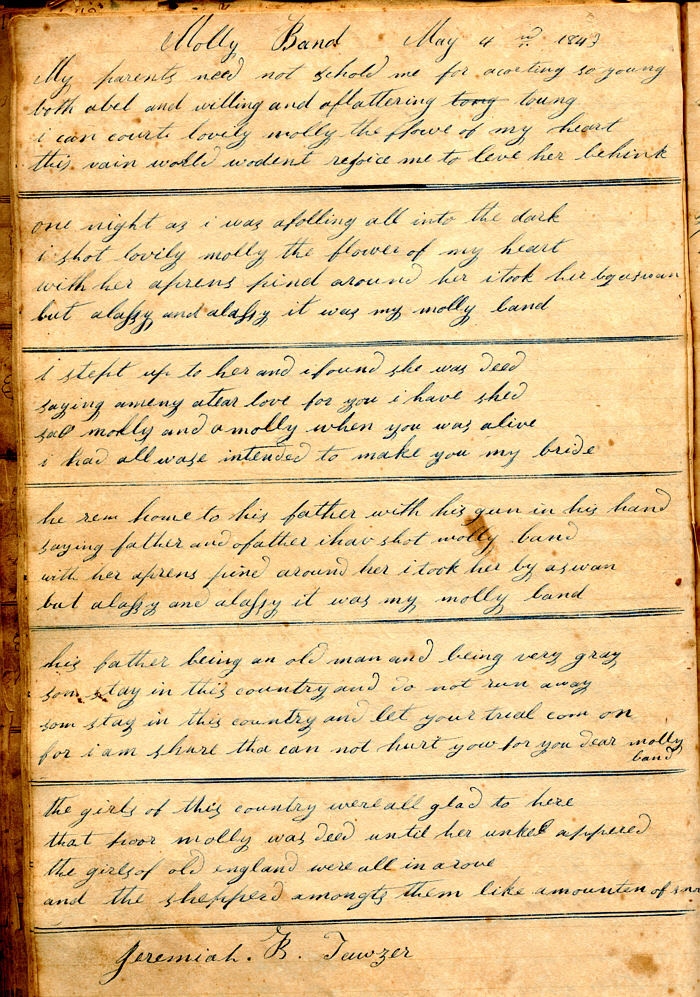 Molly Band May 4 1843
My parents need not schold me for acorting so young
both abel and willing and aflattering tong toung
i can courte lovely molly the flowe of my heart
this vain world wodent rejoice me to leve her behink
one night as i was afolling all into the dark
i shot lovily molly the flower of my heart
with her aprens pind around her i took her by aswan
but alassy and alassy it was my molly band
i stept up to her and ifound she was deed
saying ameny atear love for you i have shed
molly and a molly when you was alive
i had all wase intended to make you my bride
he home to his father with his gun in his hand
saying father and ofather ihav shot molly band
with her aprens pind around her i took her by aswan
but alassy and alassy it was my molly band
his father being an old man and being very gray
som stay in this country and do not run away
som stay in this country and let your trial com on
for i am shure tha can not hurt you for you dear molly
band
the girls of this country were all glad to here
that poor molly was deed until her unkel appered
the girls of old england were all in arove
and the shepperd amongts them like amounten of
Jeremiah. B. Tawzer